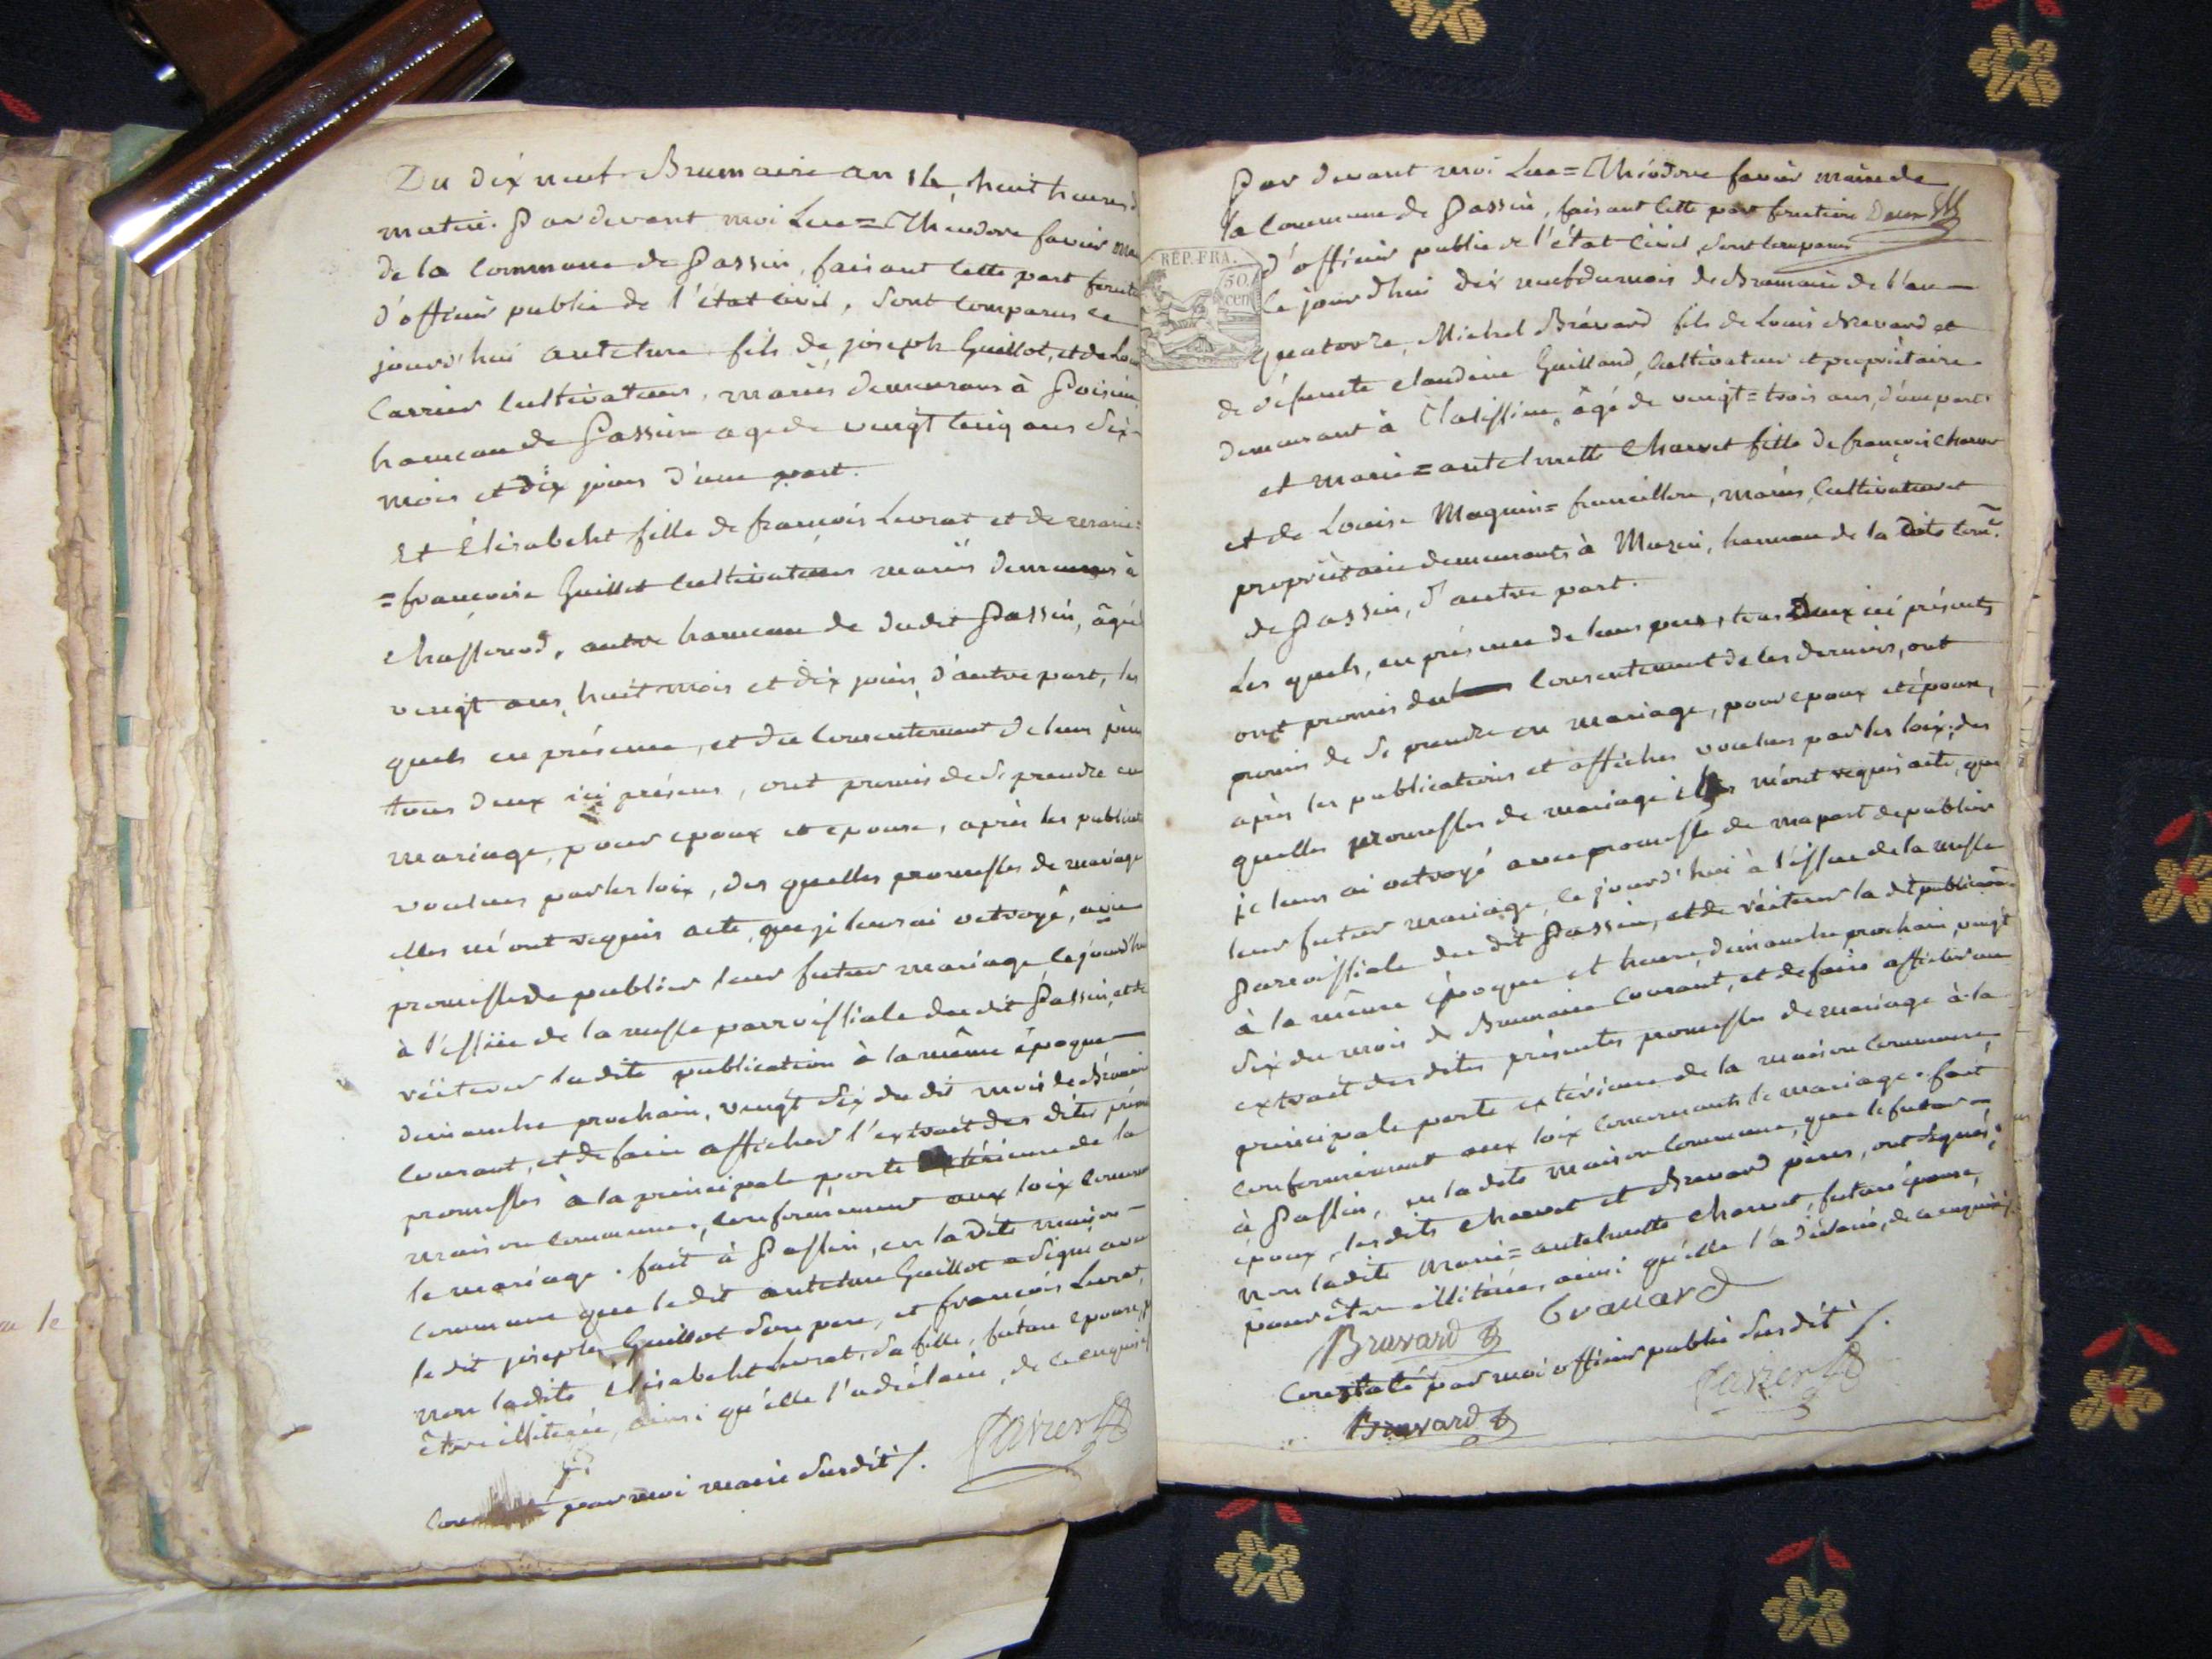 Du dix neuf Brumaire an 14, huit heures d
matin. Par devant moi Luc=Theodore favier mai
de la commune de Passin, faisant cette part foncti
d'officier public de l'état civil, sont comparus ce
jourd'hui antelme fils de joseph Guillot, et de Lou
Carrier cultivateurs, mariés demeurans à Poisin,
hameau de Passin age de vingt cinq ans dix
mois et dix jours d'une part.
Et Elisabeht fille de françois Levrat et de marie=
=françoise Guillot cultivateurs mariés demeurans à
Chasserod, autre hameau de dudit Passin, âgée
vingt ans, huit mois et dix jours, d'autre part, les
quels en présence, et du consentement de leurs pères
tous deux ici présens, ont promis de se prendre en
mariage, pour epoux et epouse, après les publicati
voulues par les loix, des quelles promesses de mariage
elles m'ont requis acte, que je leur ai octroyé, avec
promesse de publier leur futur mariage ce jourd'hui
à l'issüe de la messe parroissiale du dit Passin, et de
réiterer ladite publication à la même époque
dimanche prochain, vingt six du dit mois de Brumaire
courant, et de faire afficher l'extrait des dites présen
promesses à la principale porte extérieure de la
maison commune, conformément aux loix concern
le mariage. fait à Passin, en la dite maison
commune que ledit antelme Guillot a signé avec
le dit joseph Guillot son pere, et françois Levrat,
non ladite Elisabeht Levrat, sa fille, future epouse, p
être illiterée, ainsi qu'elle l'a déclaré, de ce enquis
par moi maire susdit /.
favier
Par devant moi Luc=Théodore favier maire de
la commune de Passin, faisant cette part fonctions
d'officier public de l'état civil, sont comparus
REP. FRA.
50 cen
ce jourd'hui dix neuf du mois de Brumaire de l'an
quatorze, Michel Brévard fils de Louis Brevard et
de défunte claudine Guilland, cultivateur et propriétaire
demeurant à âgé de vingt=trois ans, d'une part.
et marie=antelmette Charvet fille de françois Charvet
et de Louise Maquin=francillon, mariés, cultivateurs et
propriétaire demeurants à Muzin, hameau de la dite com.e
de Passin, d'autre part.
Les quels, en présence de leurs peres, tous Deux ici présents
ont promis du consentement de ces derniers, ont
promis de se prendre en mariage, pour epoux et épouse,
après les publications et affiches voulues par les loix; des
quelles promesses de mariage m'ont requis acte, que
je leurs ai octroyé avec promesse de ma part de publier
leur futur mariage, ce jourd'hui à l'issue de la messe
paroissiale du dit Passin, et de réiterer la dite publication
à la même époque et heure, dimanche prochain, vingt
six du mois de Brumaire courant, et de faire afficher un
extrait des dites présentes promesses de mariage à la
principale porte extérieure de la maison commune,
conformément aux loix concernants le mariage. fait
à Passin, en la dite maison commune, que le futur
époux, les dits Charvet et Bravard peres, ont signés,
non ladite Marie=antelmette Charvet, future épouse,
pour être illiterée, ainsi qu'elle l'a déclaré, de ce enquis /.
Bravard Bravard
Constaté par moi officier public susdit /.
Bravard favier